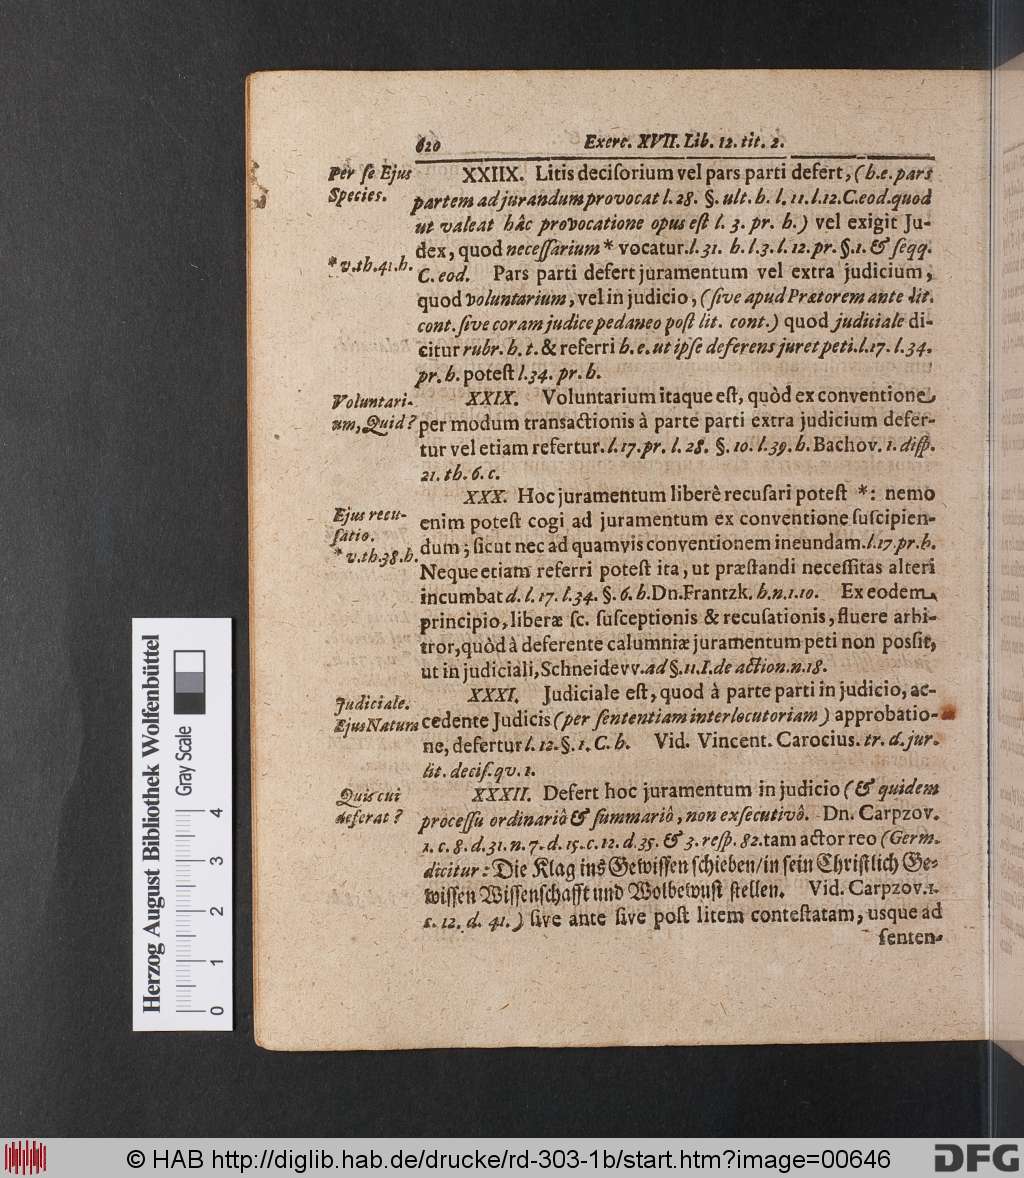 620 Exerc. XVII. Lib. 12. tit. 2.
Per se Ejus
Species.
XXIIX. Litis decisorium vel pars parti defert, (h.e. pars
partem ad jurandum provocat l. 28. §. ult. h. l. 11. l. 12. C. eod. quod
ut valeat hâc provocatione opus est l. 3. pr. h.) vel exigit Ju-
dex, quod necessarium * vocatur. l. 31. h. l. 3. l. 12. pr. §. 1. & seqq.
* v. th. 41. h.
C. eod. Pars parti defert juramentum vel extra judicium,
quod voluntarium, vel in judicio, (sive apud Prætorem ante lit.
cont. sive coram judice pedaneo post lit. cont.) quod judiciale di-
citur rubr. h. t. & referri h. e. ut ipse deferens juret peti. l. 17. l. 34.
pr. h. potest l. 34. pr. h.
Voluntari-
um, Quid?
XXIX. Voluntarium itaque est, quòd ex conventione
per modum transactionis à parte parti extra judicium defer-
tur vel etiam refertur. l. 17. pr. l. 28. §. 10. l. 39. h. Bachov. 1. disp.
21. th. 6. c.
Ejus recu-
satio.
* v. th. 38. h.
XXX. Hoc juramentum liberè recusari potest *: nemo
enim potest cogi ad juramentum ex conventione suscipien-
dum; sicut nec ad quamvis conventionem ineundam. l. 17. pr. h.
Neque etiam referri potest ita, ut præstandi necessitas alteri
incumbat d. l. 17. l. 34. §. 6. h. Dn. Frantzk. h. n. 1. 10. Ex eodem
principio, liberæ sc. susceptionis & recusationis, fluere arbi-
tror, quòd à deferente calumniæ juramentum peti non possit,
ut in judiciali, Schneidevv. ad §. 11. I. de action. n. 18.
Judiciale.
Ejus Natura
XXXI. Judiciale est, quod à parte parti in judicio, ac-
cedente Judicis (per sententiam interlocutoriam) approbatio-
ne, defertur l. 12. §. 1. C. h. Vid. Vincent. Carocius. tr. d. jur.
lit. decis. qv. 1.
Quis cui
deferat?
XXXII. Defert hoc juramentum in judicio (& quidem
processu ordinariô & summariô, non exsecutivô. Dn. Carpzov.
1. c. 8. d. 31. n. 7. d. 15. c. 12. d. 35. & 3. resp. 82. tam actor reo (Germ.
dicitur: Die Klag ins Gewissen schieben/ in sein Christlich Ge-
wissen Wissenschafft und Wolbewust stellen. Vid. Carpzov. 1.
c. 12. d. 41.) sive ante sive post litem contestatam, usque ad
senten-
Herzog August Bibliothek Wolfenbüttel
Gray Scale
0 1 2 3 4
© HAB http://diglib.hab.de/drucke/rd-303-1b/start.htm?image=00646
DFG